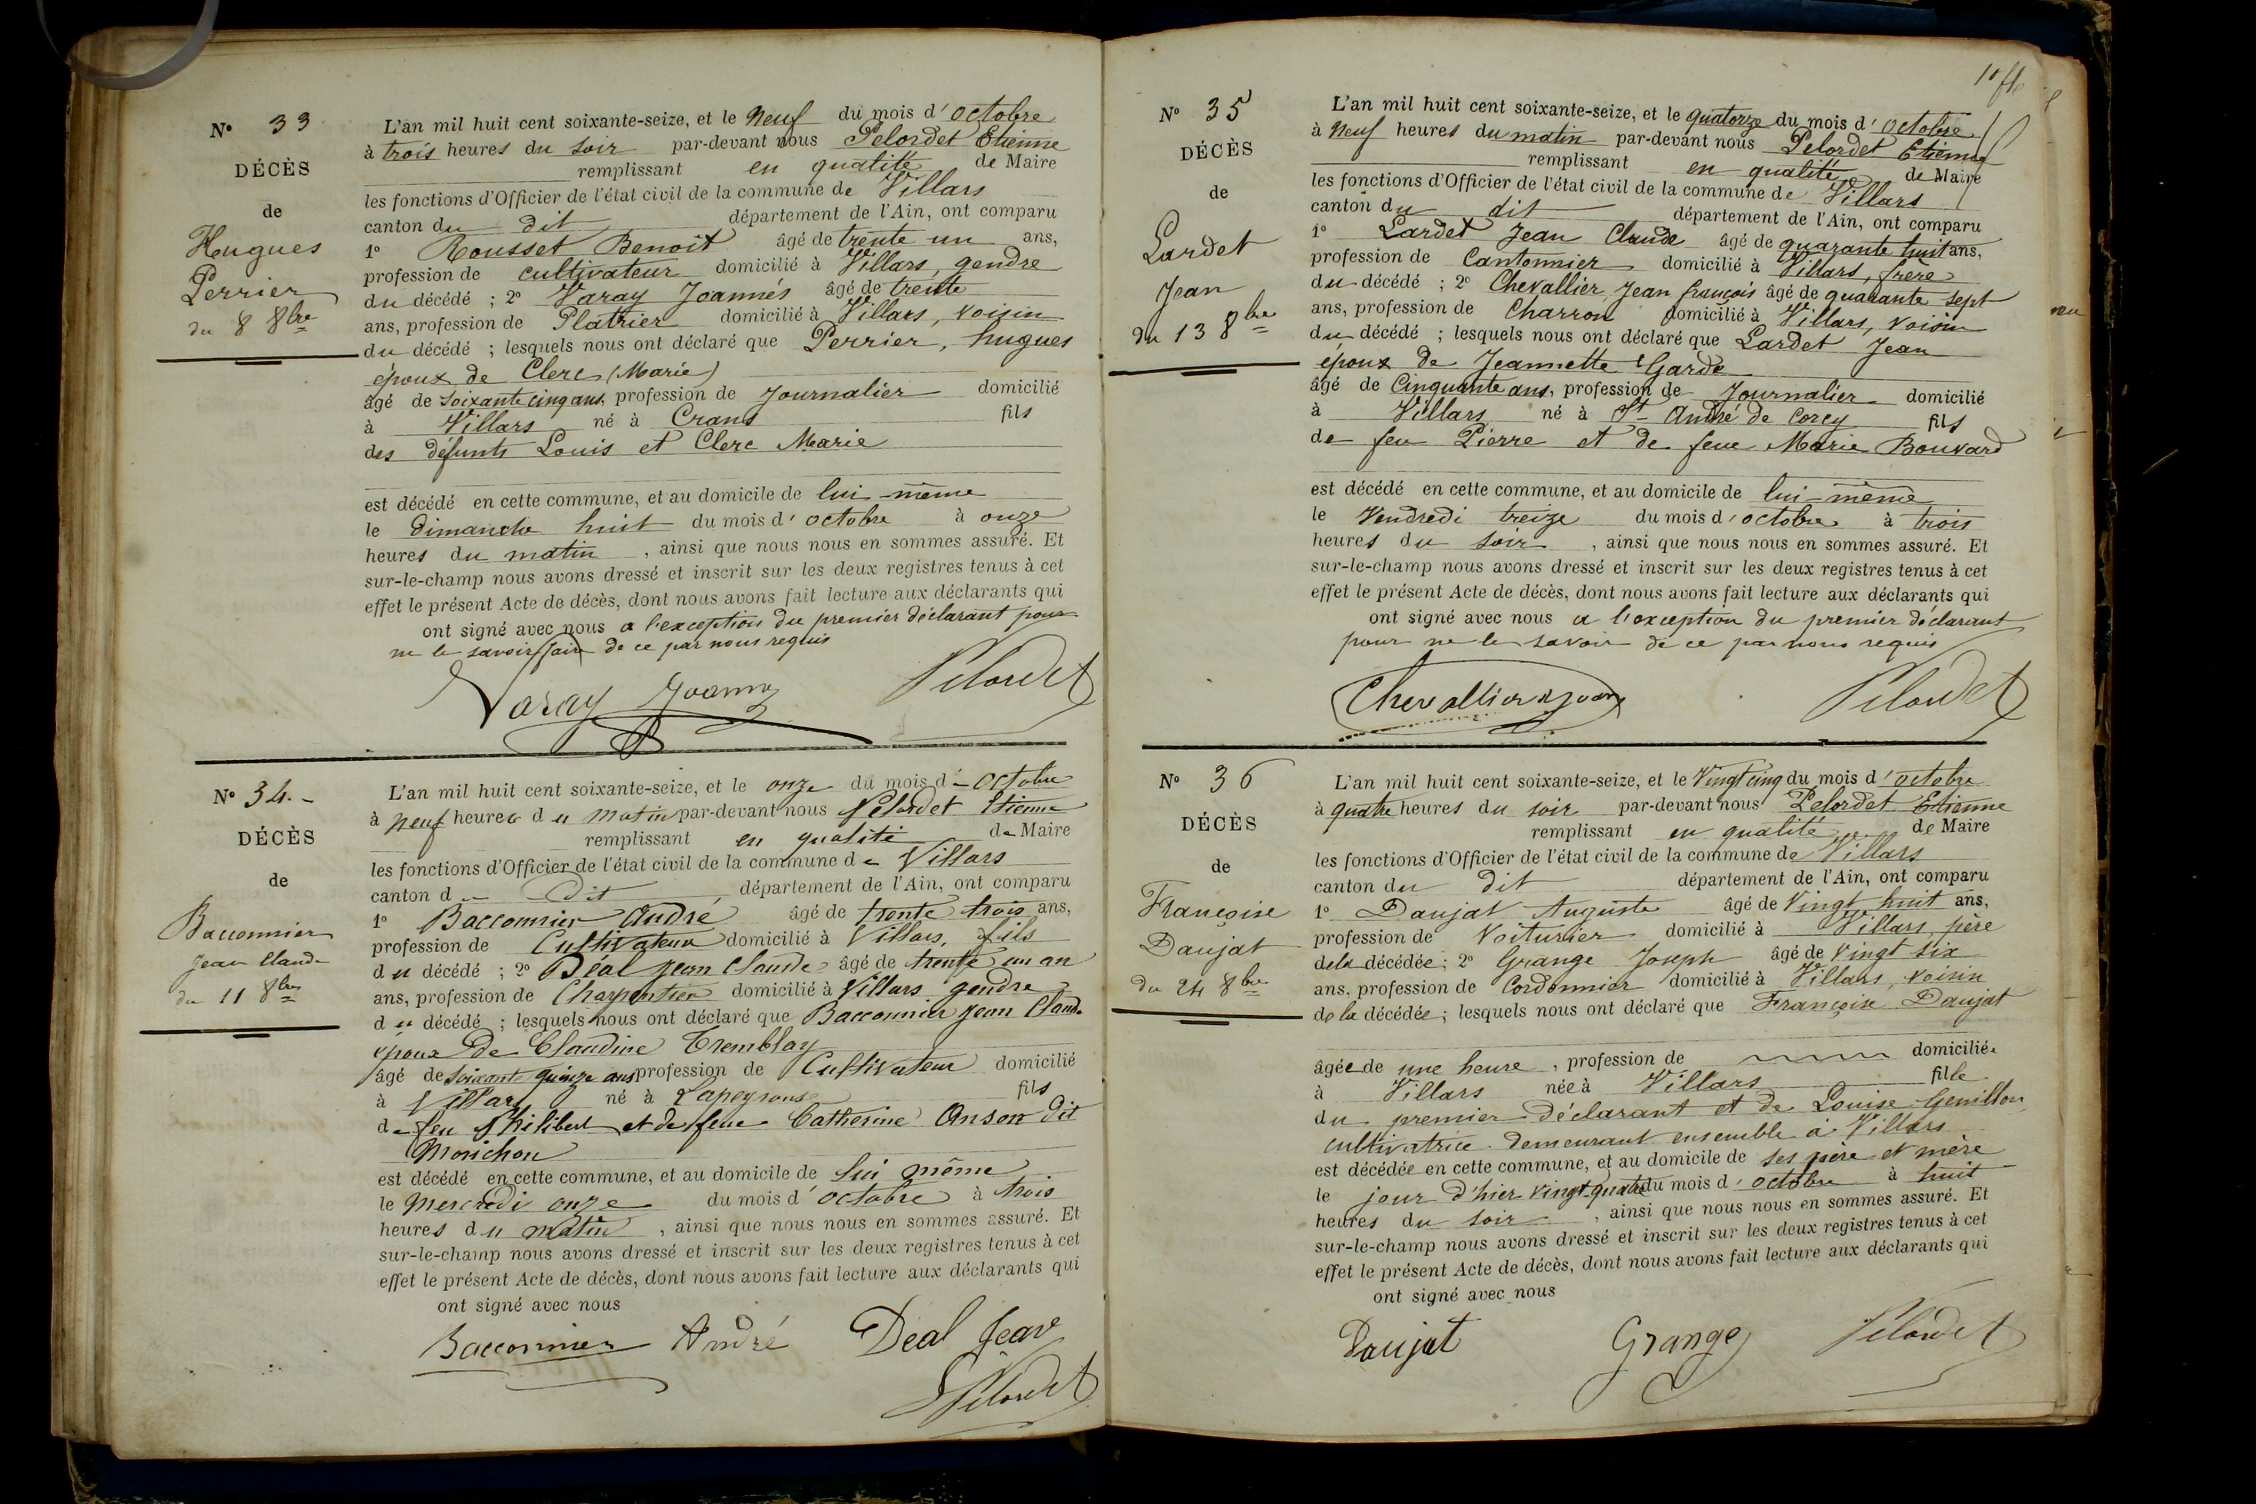 N° 33
DÉCÈS
de
Hugues
Perrier
du 8 8bre
L'an mil huit cent soixante-seize, et le Neuf du mois d'octobre
à trois heures du soir par-devant nous Pelordet Etienne
remplissant en qualité de Maire
les fonctions d'Officier de l'état civil de la commune de Villars
canton du dit département de l'Ain, ont comparu
1° Rousset Benoit âgé de trente un ans,
profession de cultivateur domicilié à Villars, gendre
du décédé ; 2° Varay Joannés âgé de trente
ans, profession de Platrier domicilié à Villars, voisin
du décédé ; lesquels nous ont déclaré que Perrier, hugues
époux de Clerc (Marie)
âgé de soixante cinq ans, profession de Journalier domicilié
à Villars né à Crans fils
des défunts Louis et Clerc Marie
est décédé en cette commune, et au domicile de lui-même
le dimanche huit du mois d'octobre à onze
heures du matin, ainsi que nous nous en sommes assuré. Et
sur-le-champ nous avons dressé et inscrit sur les deux registres tenus à cet
effet le présent Acte de décès, dont nous avons fait lecture aux déclarants qui
ont signé avec nous a l'exception du premier déclarant pour
ne le savoir faire de ce par nous requis
Varay Joanny Pelordet
N° 34.
DÉCÈS
de
Bacconnier
Jean Claude
du 11 8bre
L'an mil huit cent soixante-seize, et le onze du mois d'octobre
à neuf heures du matin par-devant nous Pelordet Etienne
remplissant en qualité de Maire
les fonctions d'Officier de l'état civil de la commune de Villars
canton du dit département de l'Ain, ont comparu
1° Bacconnier André âgé de trente trois ans,
profession de Cultivateur domicilié à Villars, fils
du décédé ; 2° Déal Jean Claude âgé de trente un an
ans, profession de Charpentier domicilié à Villars gendre
du décédé ; lesquels nous ont déclaré que Bacconnier Jean Claude
époux de Claudine Tremblay
âgé de soixante quinze ans profession de Cultivateur domicilié
à Villars né à Lapeyrouse fils
de feu Philibert et de feue Catherine Anson dit
Monichon
est décédé en cette commune, et au domicile de lui même
le Mercredi onze du mois d'octobre à trois
heures du matin, ainsi que nous nous en sommes assuré. Et
sur-le-champ nous avons dressé et inscrit sur les deux registres tenus à cet
effet le présent Acte de décès, dont nous avons fait lecture aux déclarants qui
ont signé avec nous
Bacconnier André Déal Jean
Pelordet
N° 35
DÉCÈS
de
Lardet
Jean
du 13 8bre
L'an mil huit cent soixante-seize, et le quatorze du mois d'octobre
à Neuf heures du matin par-devant nous Pelordet Etienne
remplissant en qualité de Maire
les fonctions d'Officier de l'état civil de la commune de Villars
canton du dit département de l'Ain, ont comparu
1° Lardet Jean Claude âgé de quarante huit ans,
profession de Cantonnier domicilié à Villars, frère
du décédé ; 2° Chevallier, Jean françois âgé de quarante sept
ans, profession de Charron domicilié à Villars, voisin
du décédé ; lesquels nous ont déclaré que Lardet Jean
époux de Jeannette Garde
âgé de Cinquante ans, profession de Journalier domicilié
à Villars né à St André de Corcy fils
de feu Pierre et de feue Marie Bouvard
est décédé en cette commune, et au domicile de lui-même
le Vendredi treize du mois d'octobre à trois
heures du soir, ainsi que nous nous en sommes assuré. Et
sur-le-champ nous avons dressé et inscrit sur les deux registres tenus à cet
effet le présent Acte de décès, dont nous avons fait lecture aux déclarants qui
ont signé avec nous a l'exception du premier déclarant
pour ne le savoir de ce par nous requis
Chevallier Pelordet
N° 36
DÉCÈS
de
Françoise
Daujat
du 24 8bre
L'an mil huit cent soixante-seize, et le Vingt cinq du mois d'octobre
à quatre heures du soir par-devant nous Pelordet Etienne
remplissant en qualité de Maire
les fonctions d'Officier de l'état civil de la commune de Villars
canton du dit département de l'Ain, ont comparu
1° Daujat Auguste âgé de Vingt huit ans,
profession de Voiturier domicilié à Villars, père
de la décédée ; 2° Grange Joseph âgé de vingt six
ans, profession de Cordonnier domicilié à Villars, voisin
de la décédée ; lesquels nous ont déclaré que Françoise Daujat
âgée de une heure, profession de domiciliée
à Villars née à Villars fille
du premier déclarant et de Louise Genillon
cultivatrice demeurant ensemble à Villars
est décédée en cette commune, et au domicile de ses père et mère
le jour d'hier vingt quatre du mois d'octobre à huit
heures du soir, ainsi que nous nous en sommes assuré. Et
sur-le-champ nous avons dressé et inscrit sur les deux registres tenus à cet
effet le présent Acte de décès, dont nous avons fait lecture aux déclarants qui
ont signé avec nous
Daujat Grange Pelordet